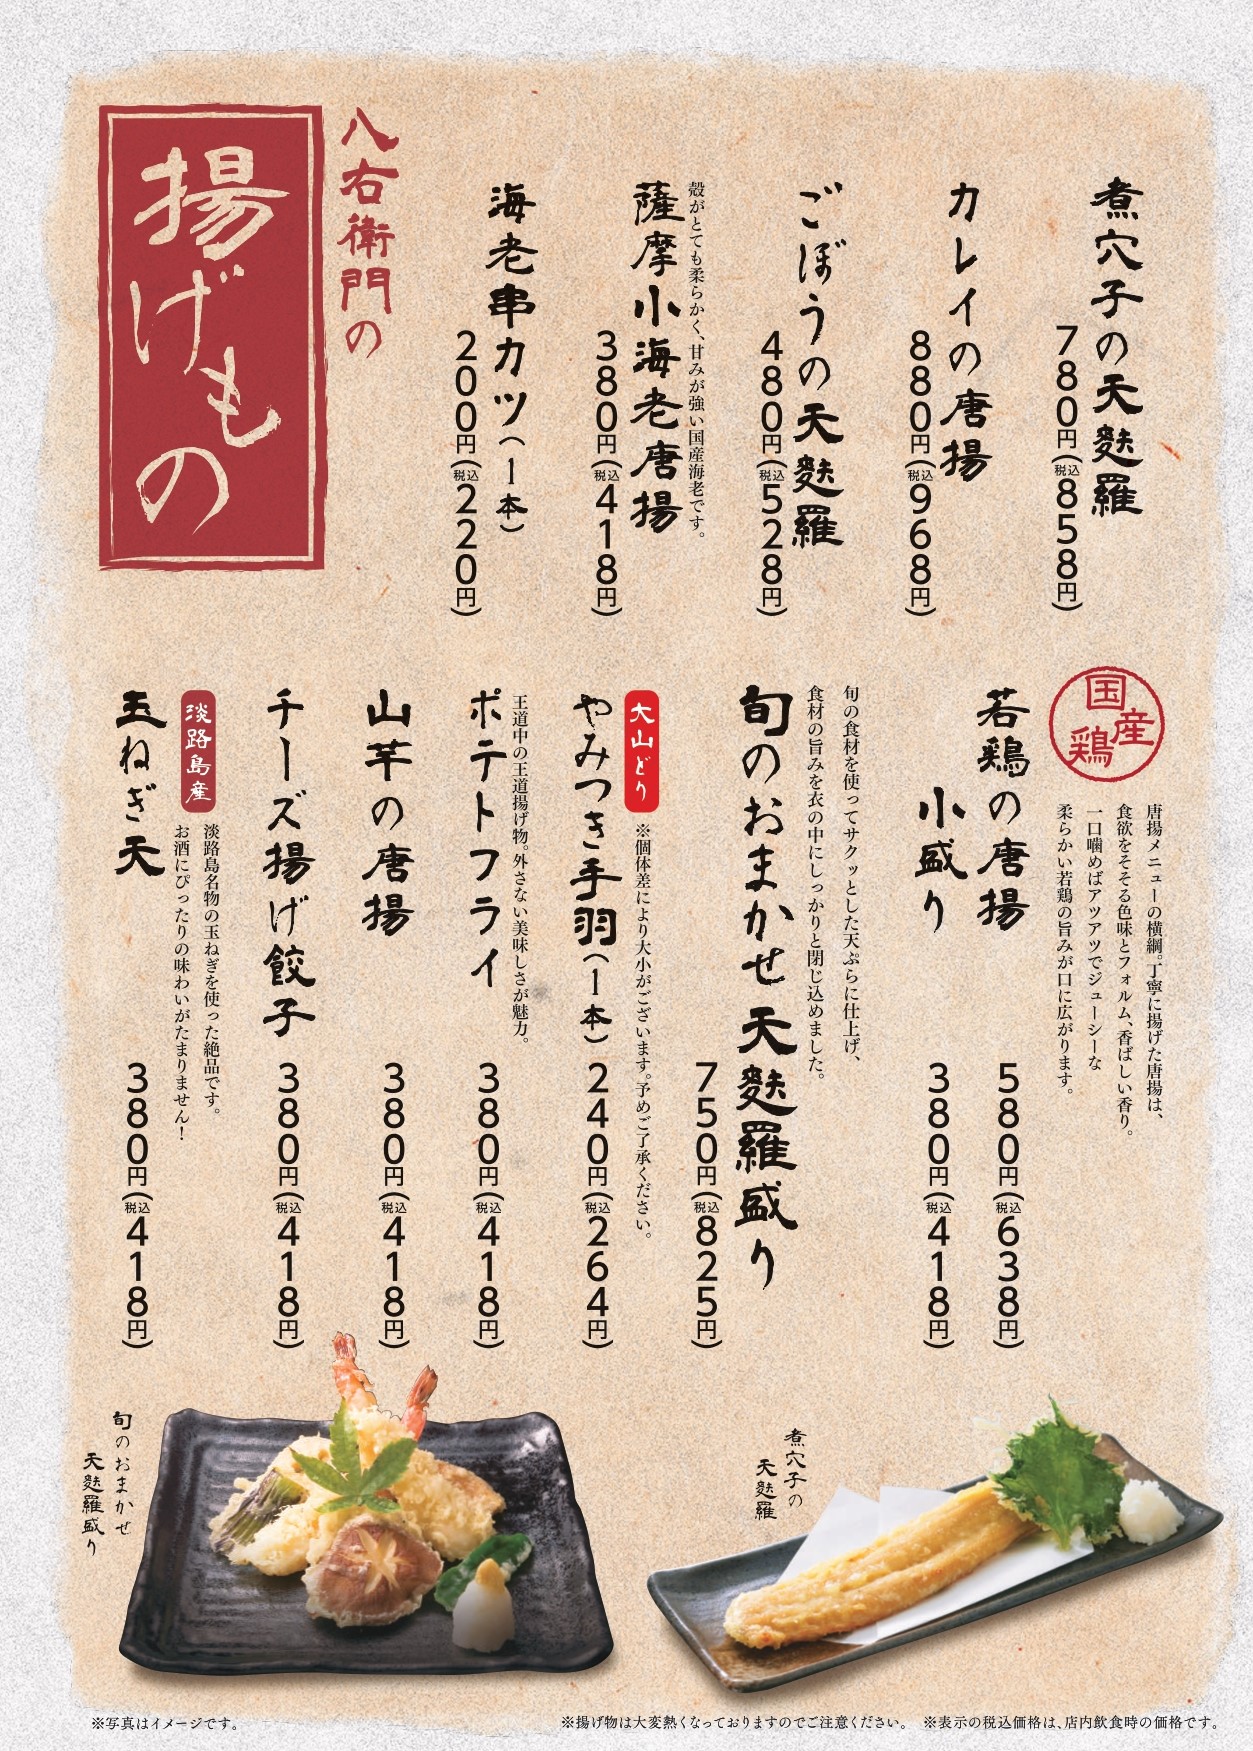 八右衛門の
揚げもの
煮穴子の天麩羅
780円(税込858円)
カレイの唐揚
880円(税込968円)
ごぼうの天麩羅
480円(税込528円)
殻がとても柔らかく、甘みが強い国産海老です。
薩摩小海老唐揚
380円(税込418円)
海老串カツ(1本)
200円(税込220円)
国産鶏
唐揚メニューの横綱。丁寧に揚げた唐揚は、
食欲をそそる色味とフォルム、香ばしい香り。
一口噛めばアツアツでジューシーな
柔らかい若鶏の旨みが口に広がります。
若鶏の唐揚
580円(税込638円)
小盛り
380円(税込418円)
旬の食材を使ってサクッとした天ぷらに仕上げ、
食材の旨みを衣の中にしっかりと閉じ込めました。
旬のおまかせ天麩羅盛り
750円(税込825円)
大山どり
※個体差により大小がございます。予めご了承ください。
やみつき手羽(1本)
240円(税込264円)
王道中の王道揚げ物。外さない美味しさが魅力。
ポテトフライ
380円(税込418円)
山芋の唐揚
380円(税込418円)
チーズ揚げ餃子
380円(税込418円)
淡路島産
淡路島名物の玉ねぎを使った絶品です。
お酒にぴったりの味わいがたまりません!
玉ねぎ天
380円(税込418円)
煮穴子の
天麩羅
旬のおまかせ
天麩羅盛り
※写真はイメージです。
※揚げ物は大変熱くなっておりますのでご注意ください。 ※表示の税込価格は、店内飲食時の価格です。